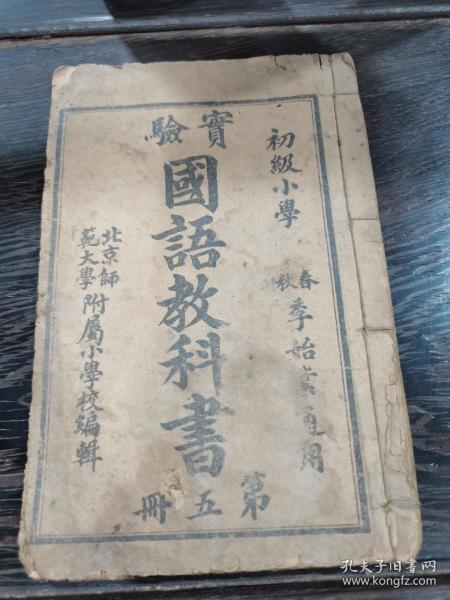 初級小學
春秋季始業通用
實驗
國語教科書
第五冊
北京師範大學附屬小學校編輯
孔夫子旧书网
www.kongfz.com